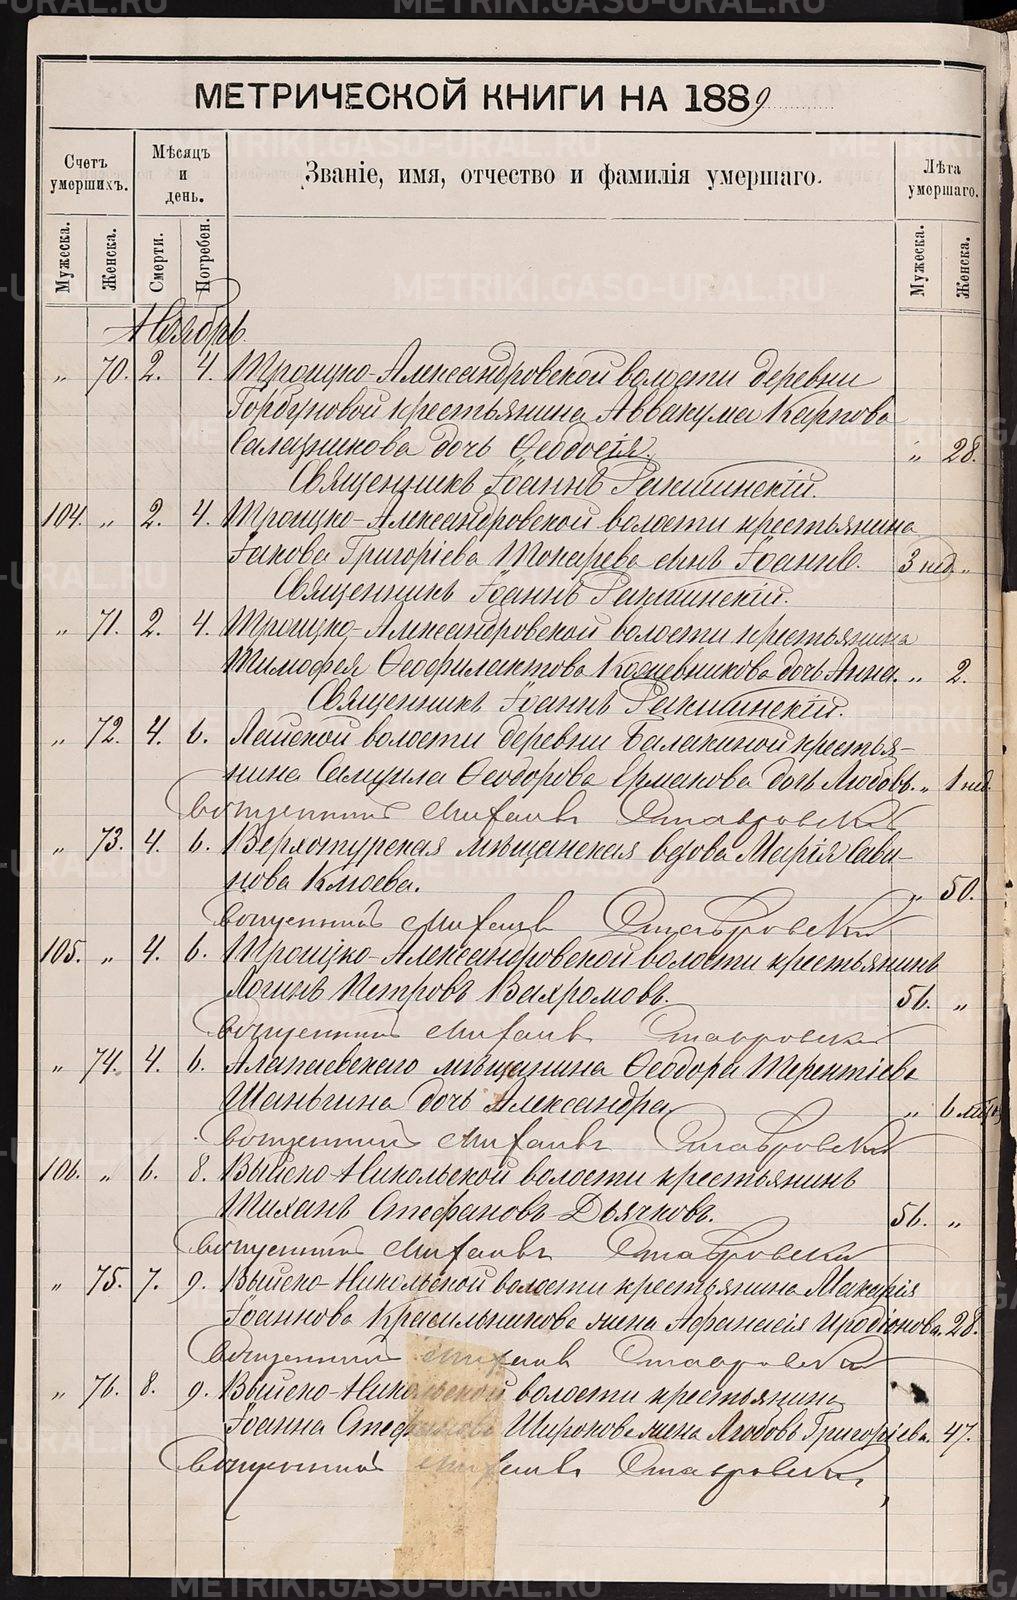 МЕТРИЧЕСКОЙ КНИГИ НА 1889
Счетъ умершихъ.
Мѣсяцъ и день.
Званіе, имя, отчество и фамилія умершаго.
Лѣта умершаго.
Мужеска.
Женска.
Смерти.
Погребен.
Мужеска.
Женска.
Ноябрь.
„ 70. 2. 4. Троицко-Александровской волости деревни
Горбуновой крестьянина Аввакума Карпова
Саладникова дочь Ѳеодосія. „ 28.
Священникъ Іоаннъ
104. „ 2. 4. Троицко-Александровской волости крестьянина
Іакова Григоріева Токарева сынъ Іоаннъ. 3 нед. „
Священникъ Іоаннъ
„ 71. 2. 4. Троицко-Александровской волости крестьянина
Тимофея Ѳеофилактова Кожевникова дочь Анна. „ 2.
Священникъ Іоаннъ
„ 72. 4. 6. Лайской волости деревни Балакиной крестья-
нина Самуила Ѳеодорова Ермакова дочь Любовь. „ 1 нед.
Священникъ Михаилъ Ставровскій
„ 73. 4. 6. Верхотурская мѣщанская вдова Марія Сави-
нова Клюева. „ 50.
Священникъ Михаилъ Ставровскій
105. „ 4. 6. Троицко-Александровской волости крестьянинъ
Логинъ Петровъ Вахромовъ. 56. „
Священникъ Михаилъ Ставровскій
„ 74. 4. 6. Алапаевскаго мѣщанина Ѳеодора Терентіева
Шаньгина дочь Александра „ 6 мѣс.
Священникъ Михаилъ Ставровскій
106. „ 6. 8. Выйско-Никольской волости крестьянинъ
Михаилъ Стефановъ Дьячковъ. 56. „
Священникъ Михаилъ Ставровскій
„ 75. 7. 9. Выйско-Никольской волости крестьянина Макарія
Іоаннова Красильникова жена Афанасія Иродіонова. 28.
Священникъ Михаилъ Ставровскій
„ 76. 8. 9. Выйско-Никольской волости крестьянина
Іоанна Стефанова Широкова жена Любовь Григоріева. 47.
Священникъ Михаилъ Ставровскій
METRIKI.GASO-URAL.RU